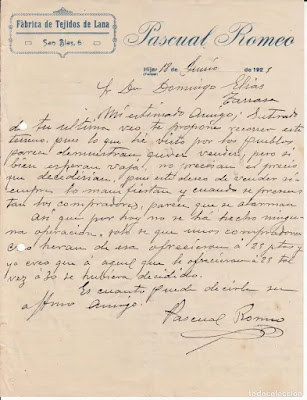 Fábrica de Tejidos de Lana
San Blas, 6
Pascual Romeo
Híjar 18 de Junio 1925
(Teruel)
Sr Dn Domingo Elias
Tarrasa
Mi estimado Amigo; Enterado
de tu ultima veo, te propone recorer este
terreno, pues lo que he visto por los Pueblos
parece demuestran quieren vender, pero si
bien esperan baja, no precisan el precio
que decidirian, pues este deseo de vender si-
empre lo manifiestan y cuando se presen-
tan los compradores, parece que se alarman
Asi qué por hoy no se há hecho ningu-
na operación, solo se que unos compradores
creo heran de esa ofrecieron á 25 ptas y
yo creo que á aquel que le ofrecieron á 25 tal
vez á 30 se hubiera decidido.
Es cuanto puede decirle su
affmo Amigo.
Pascual Romeo
todocoleccion